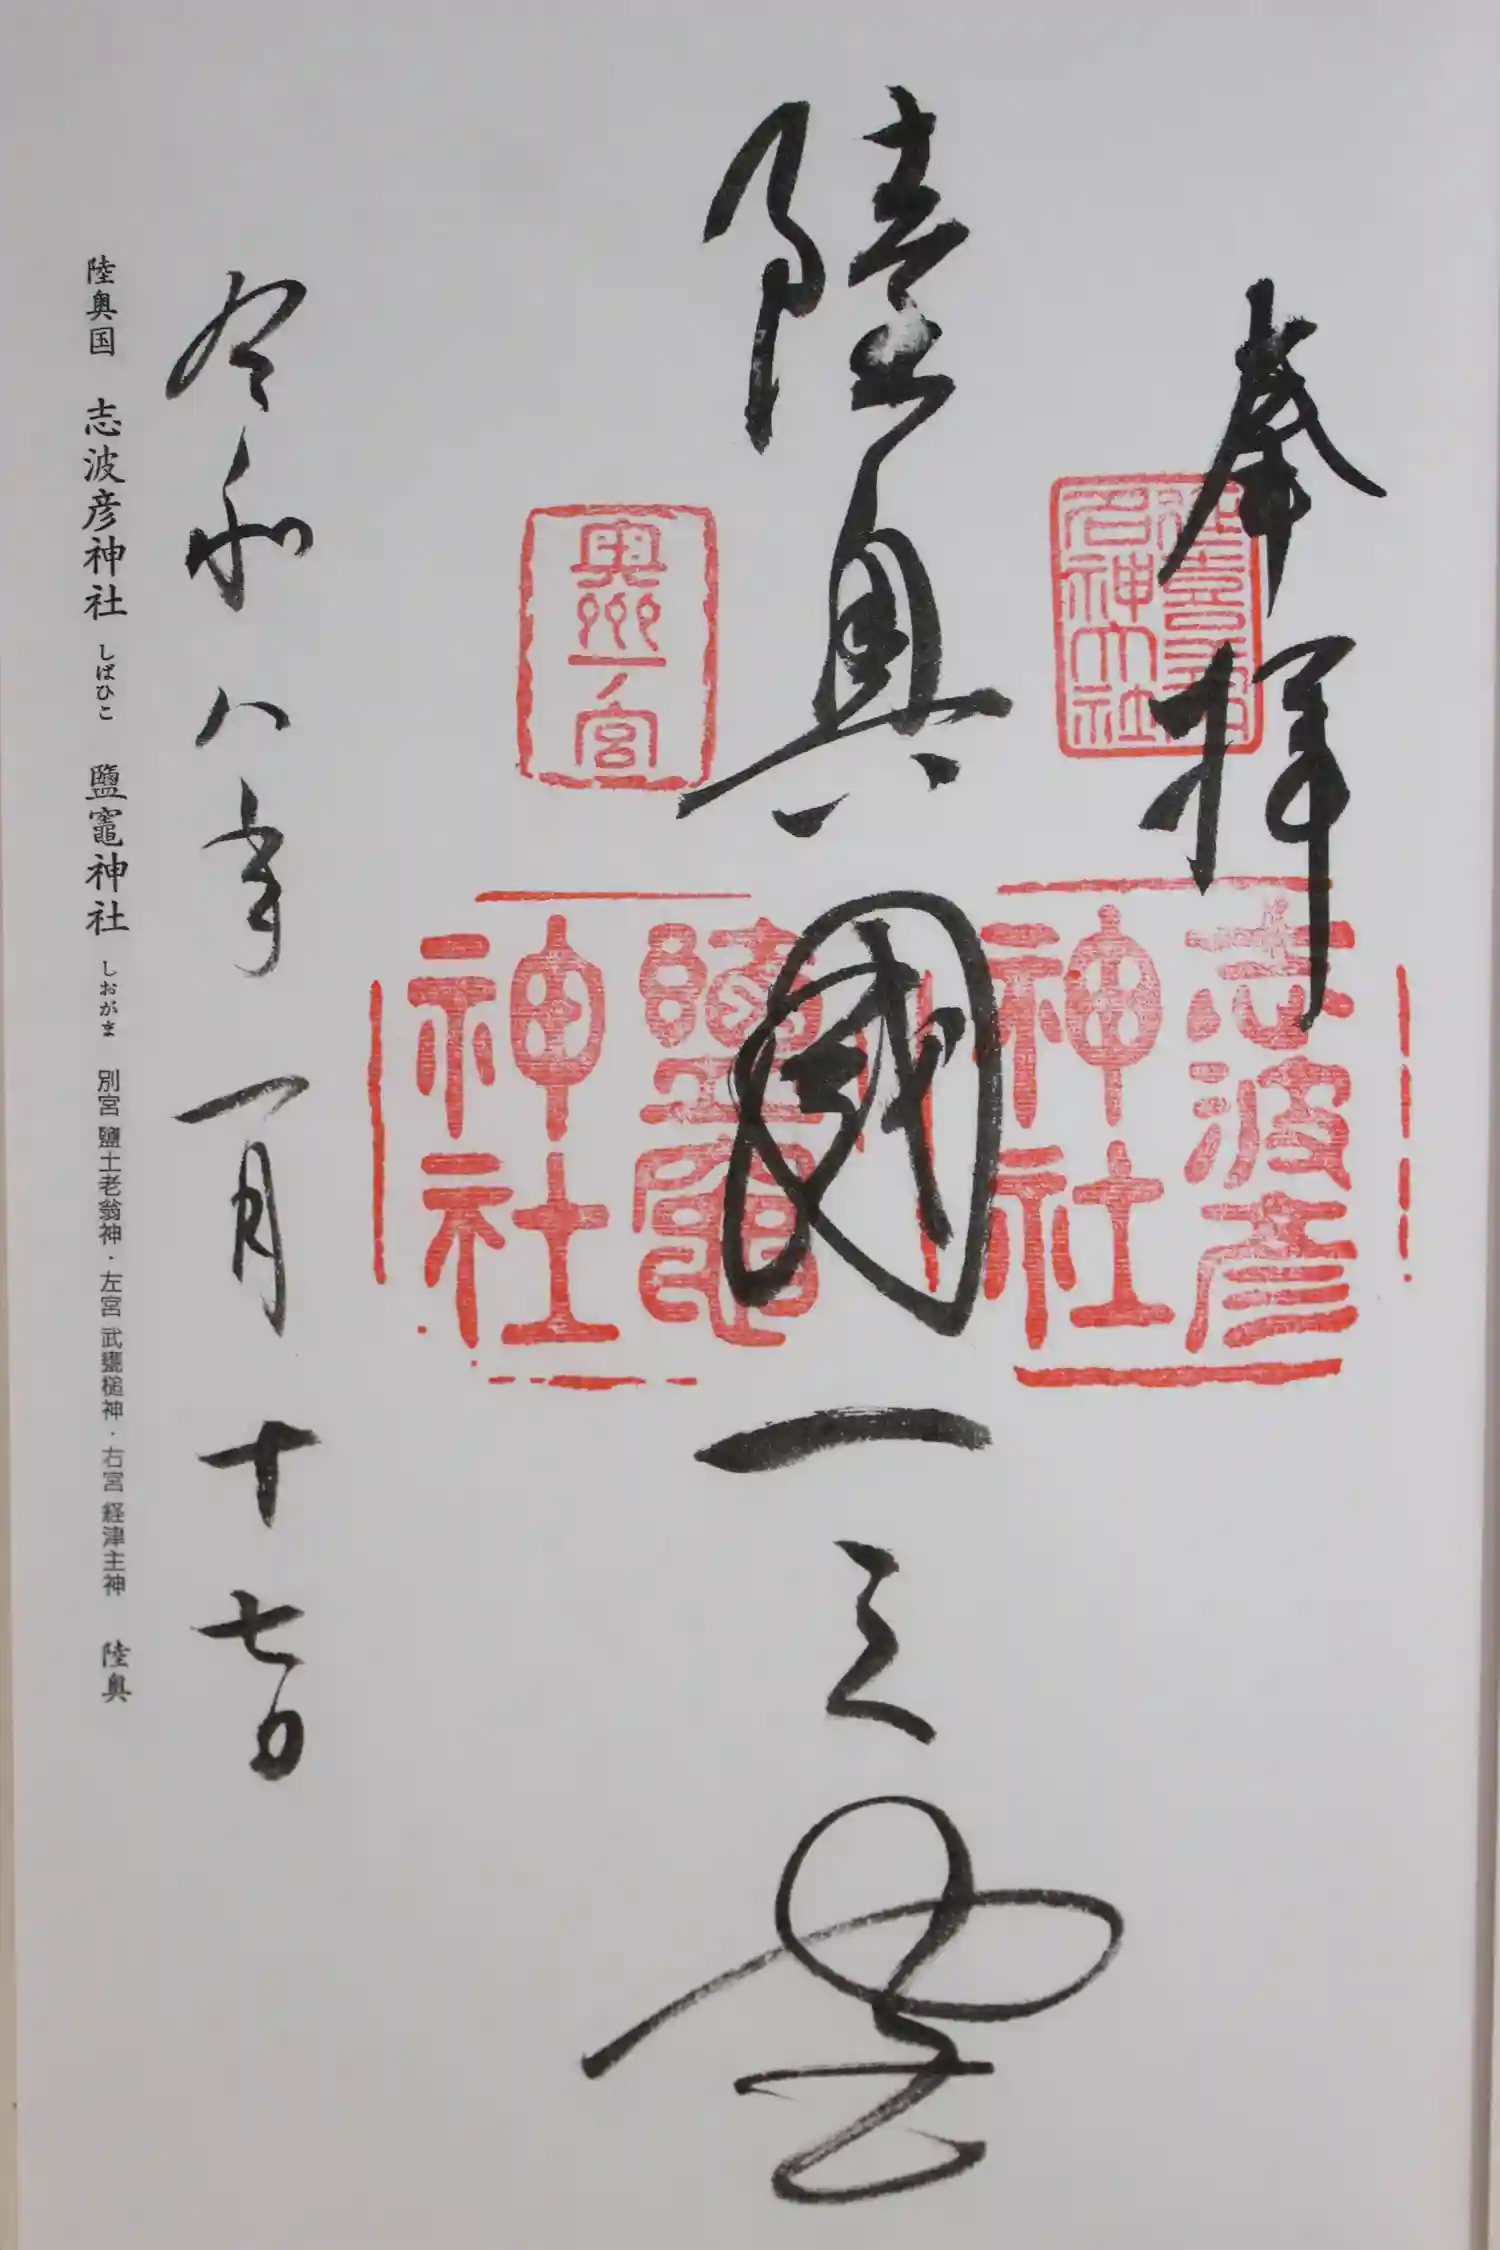 奉拝
志波彦
神社
陸奥國一之宮
鹽竈
神社
奥州一ノ宮
令和八年一月十七日
陸奥国 志波彦神社 しばひこ 鹽竈神社 しおがま 別宮 鹽土老翁神・左宮 武甕槌神・右宮 経津主神 陸奥